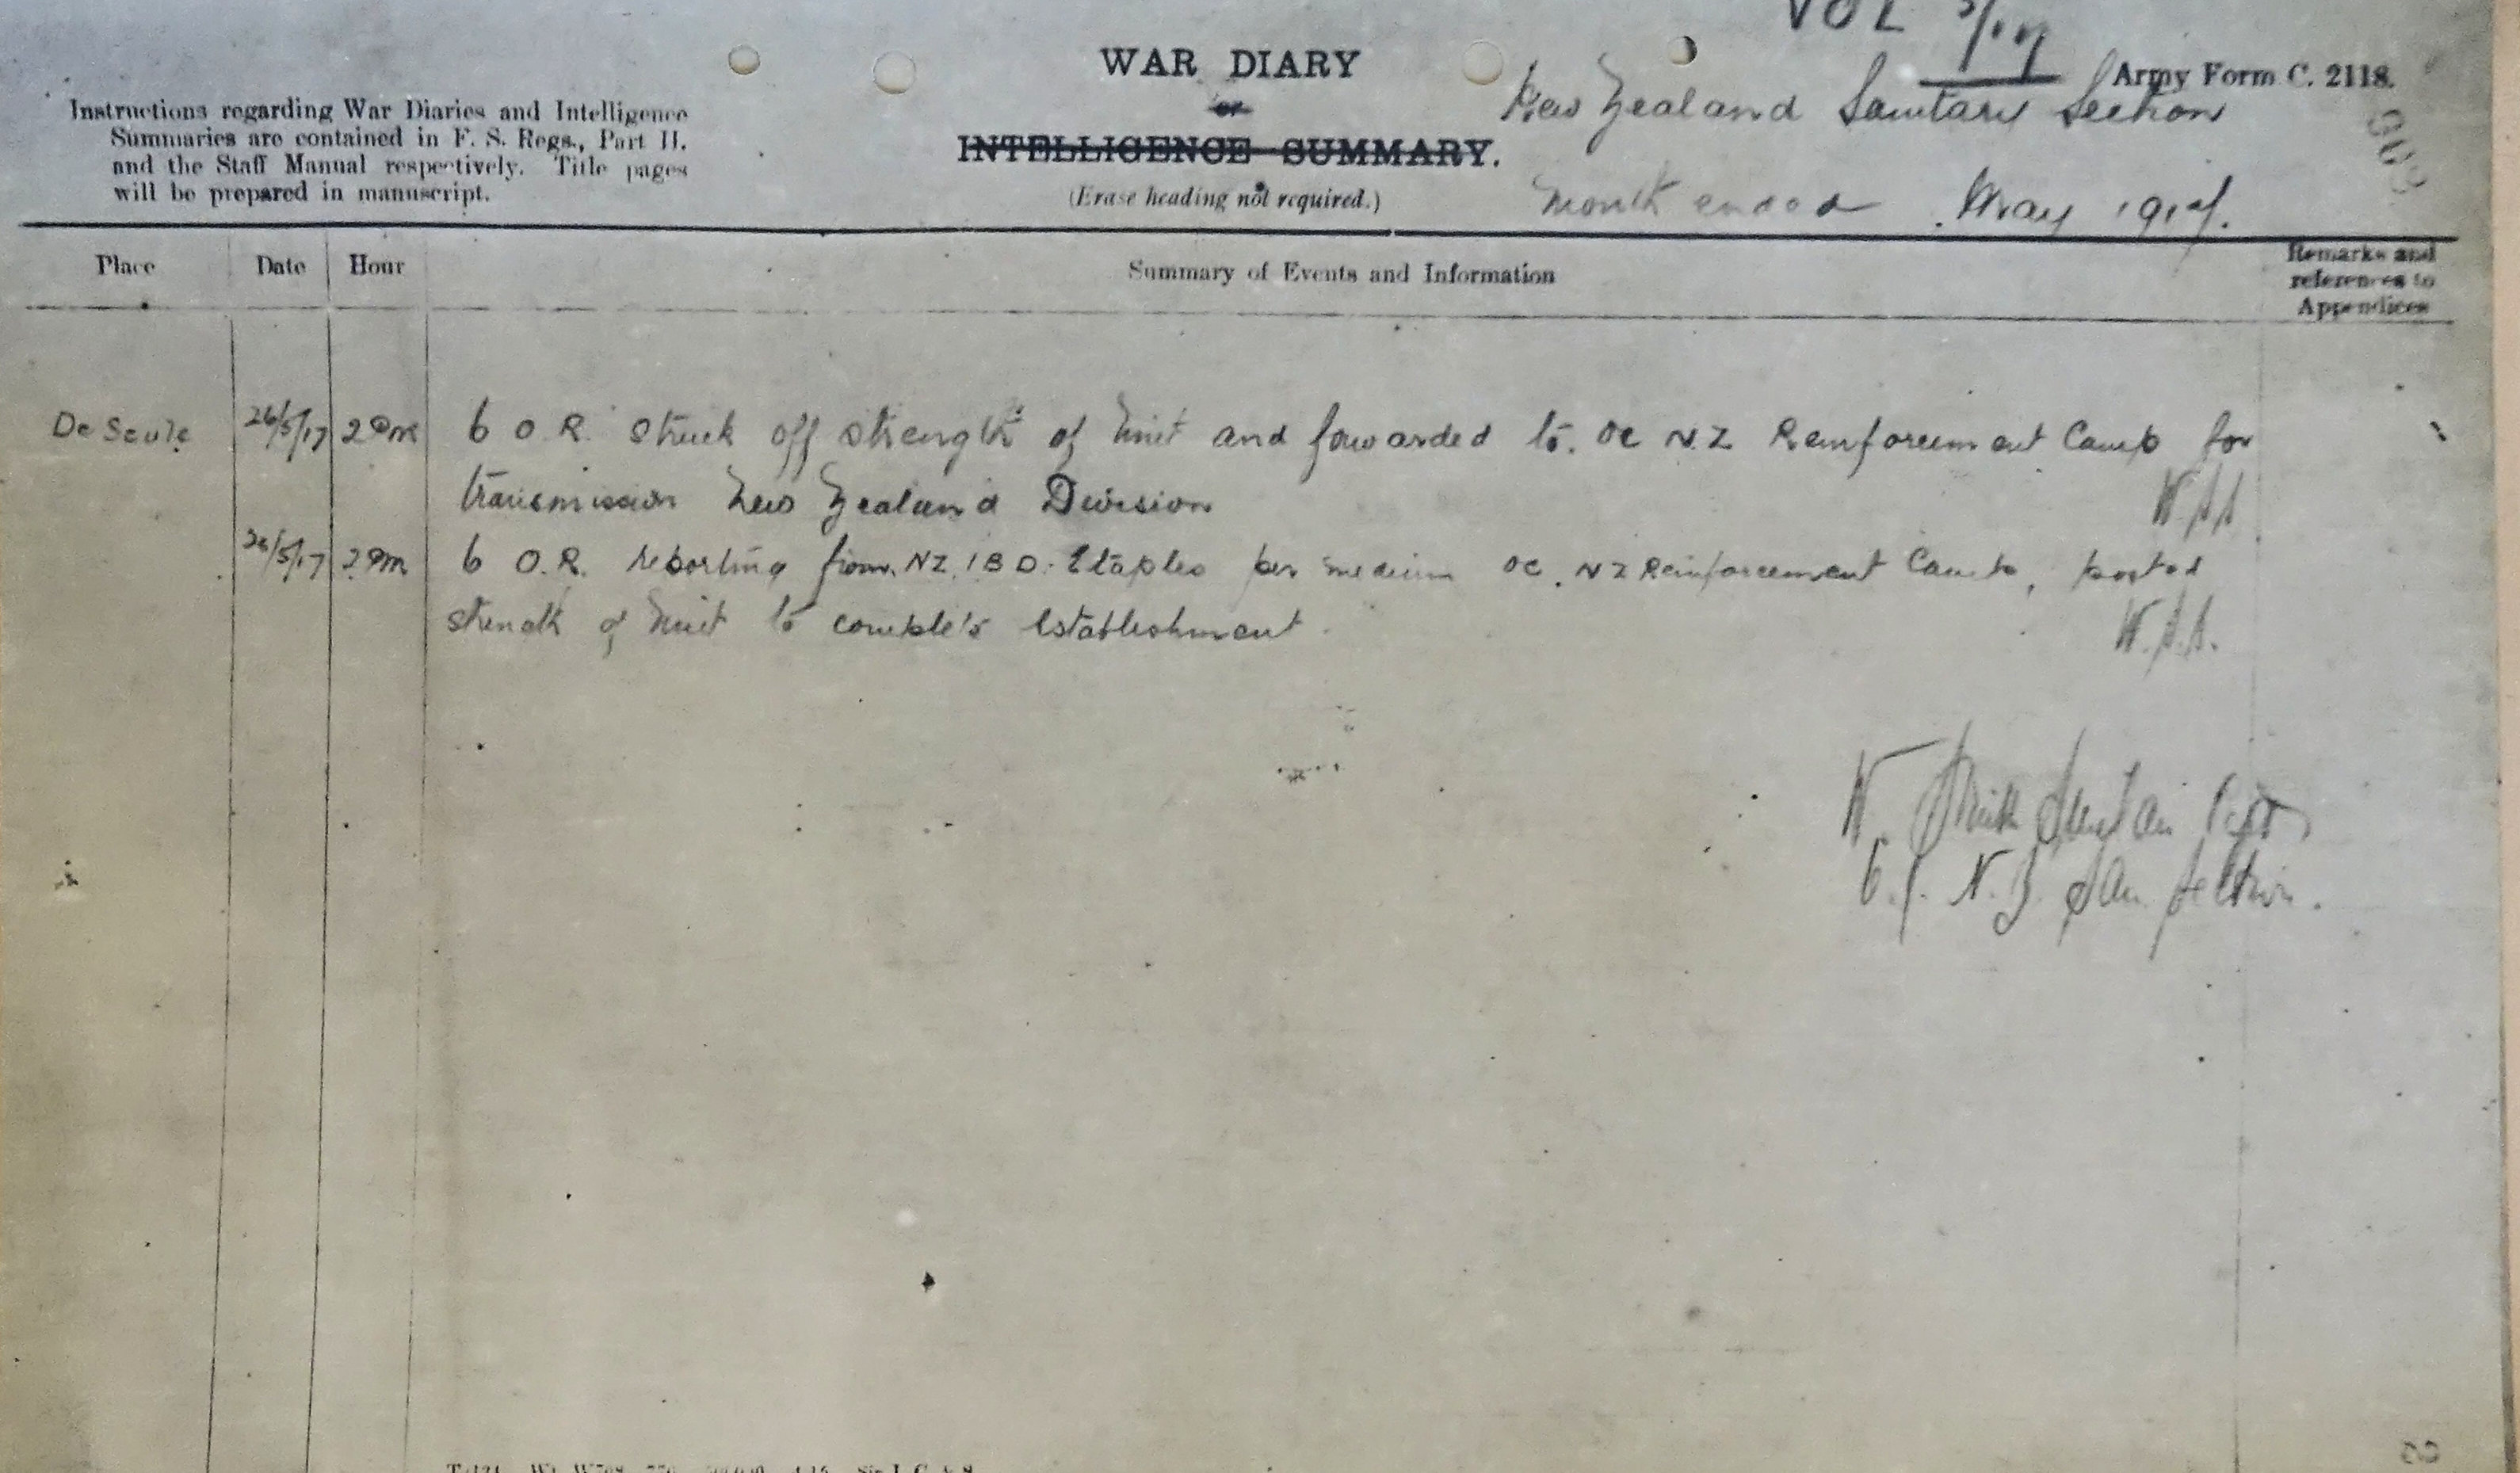 VOL 5/17
WAR DIARY
Army Form C. 2118.
or
New Zealand Sanitary Section
Instructions regarding War Diaries and Intelligence
Summaries are contained in F. S. Regs., Part II.
and the Staff Manual respectively. Title pages
will be prepared in manuscript.
INTELLIGENCE SUMMARY.
(Erase heading not required.)
Month ended May 1917.
Place Date Hour Summary of Events and Information
Remarks and
references to
Appendices
De Seule 26/5/17 2 PM 6 O.R. struck off strength of Unit and forwarded to. OC N.Z Reinforcement Camp for
transmission New Zealand Division
26/5/17 2 PM 6 O.R. reporting from NZ. I B D. Etaples per medium OC. NZ Reinforcement Camp, posted
strength of Unit to complete establishment.
N. Capt
N.Z. San Section.